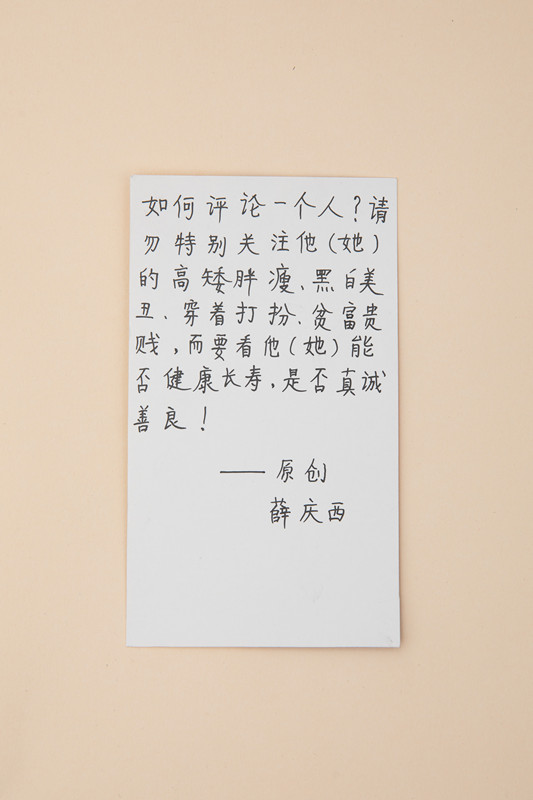 如何评论一个人？请
勿特别关注他(她)
的高矮胖瘦、黑白美
丑、穿着打扮、贫富贵
贱，而要看他(她)能
否健康长寿，是否真诚
善良！
——原创
薛庆西